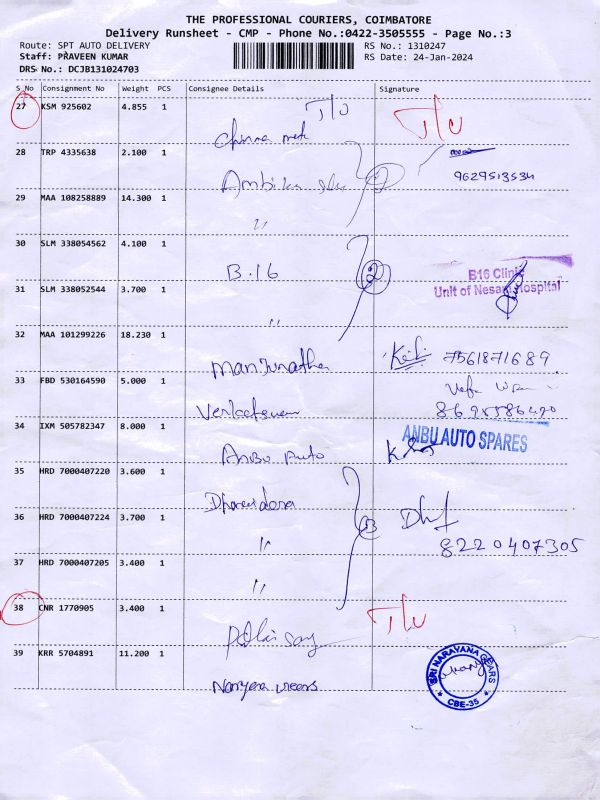 THE PROFESSIONAL COURIERS, COIMBATORE
Delivery Runsheet - CMP - Phone No.:0422-3505555 - Page No.:3
Route: SPT AUTO DELIVERY RS No.: 1310247
Staff: PRAVEEN KUMAR RS Date: 24-Jan-2024
DRS No.: DCJB131024703
S_No Consignment No Weight PCS Consignee Details Signature
27 KSM 925602 4.855 1 T/U T/U
28 TRP 4335638 2.100 1
Ambika 9629513534
29 MAA 108258889 14.300 1
"
30 SLM 338054562 4.100 1
B.16 2 B16 Clinic
Unit of Nesam Hospital
31 SLM 338052544 3.700 1
"
32 MAA 101299226 18.230 1
Manjunatha 7561871689
33 FBD 530164590 5.000 1
34 IXM 505782347 8.000 1
ANBU AUTO SPARES
Anbu Auto
35 HRD 7000407220 3.600 1
36 HRD 7000407224 3.700 1
" 3 8220407305
37 HRD 7000407205 3.400 1
"
38 CNR 1770905 3.400 1 T/U
39 KRR 5704891 11.200 1
SRI NARAYANA GEARS
CBE-35